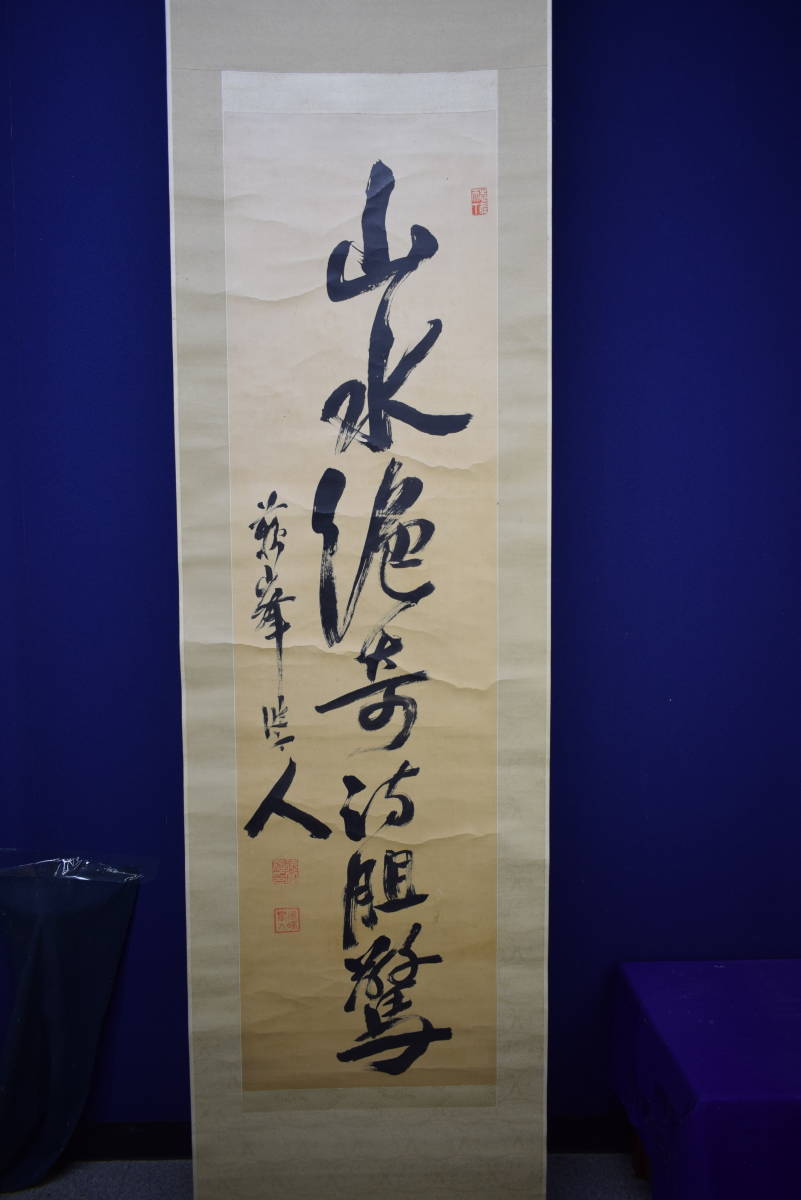 山水絶奇詩胆驚
蘇峰学人